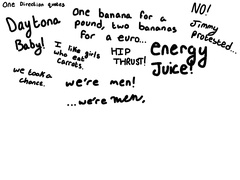 One Direction quotes
Daytona
Baby!
One banana for a
pound, two bananas
for a euro...
NO!
Jimmy
Protested...
I like girls
who eat
carrots.
HIP
THRUST!
energy
Juice!
we took a
chance.
we're men!
...we're men.